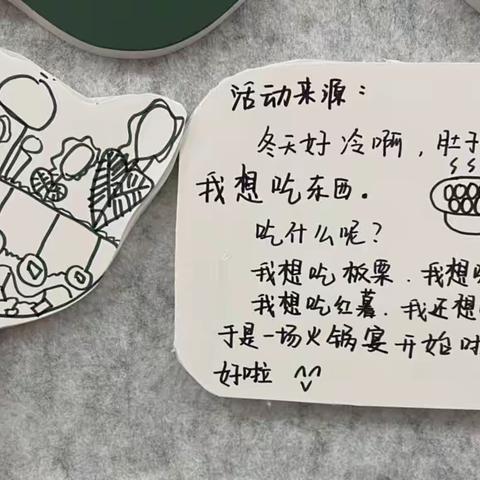 活动来源：
冬天好冷啊，肚子
我想吃东西。
吃什么呢？
我想吃板栗.我想
我想吃红薯.我还想
于是一场火锅宴开始
好啦